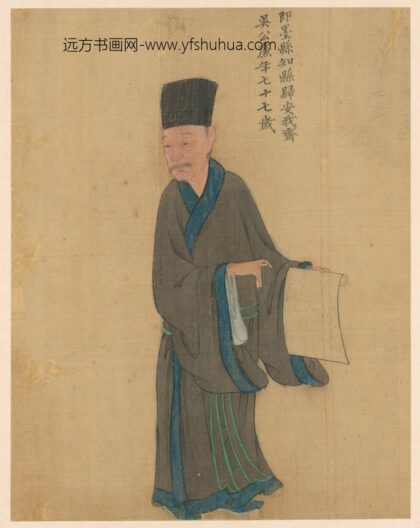 远方书画网-www.yfshuhua.com
即墨縣知縣歸安我齋
吳公廉年七十七歲